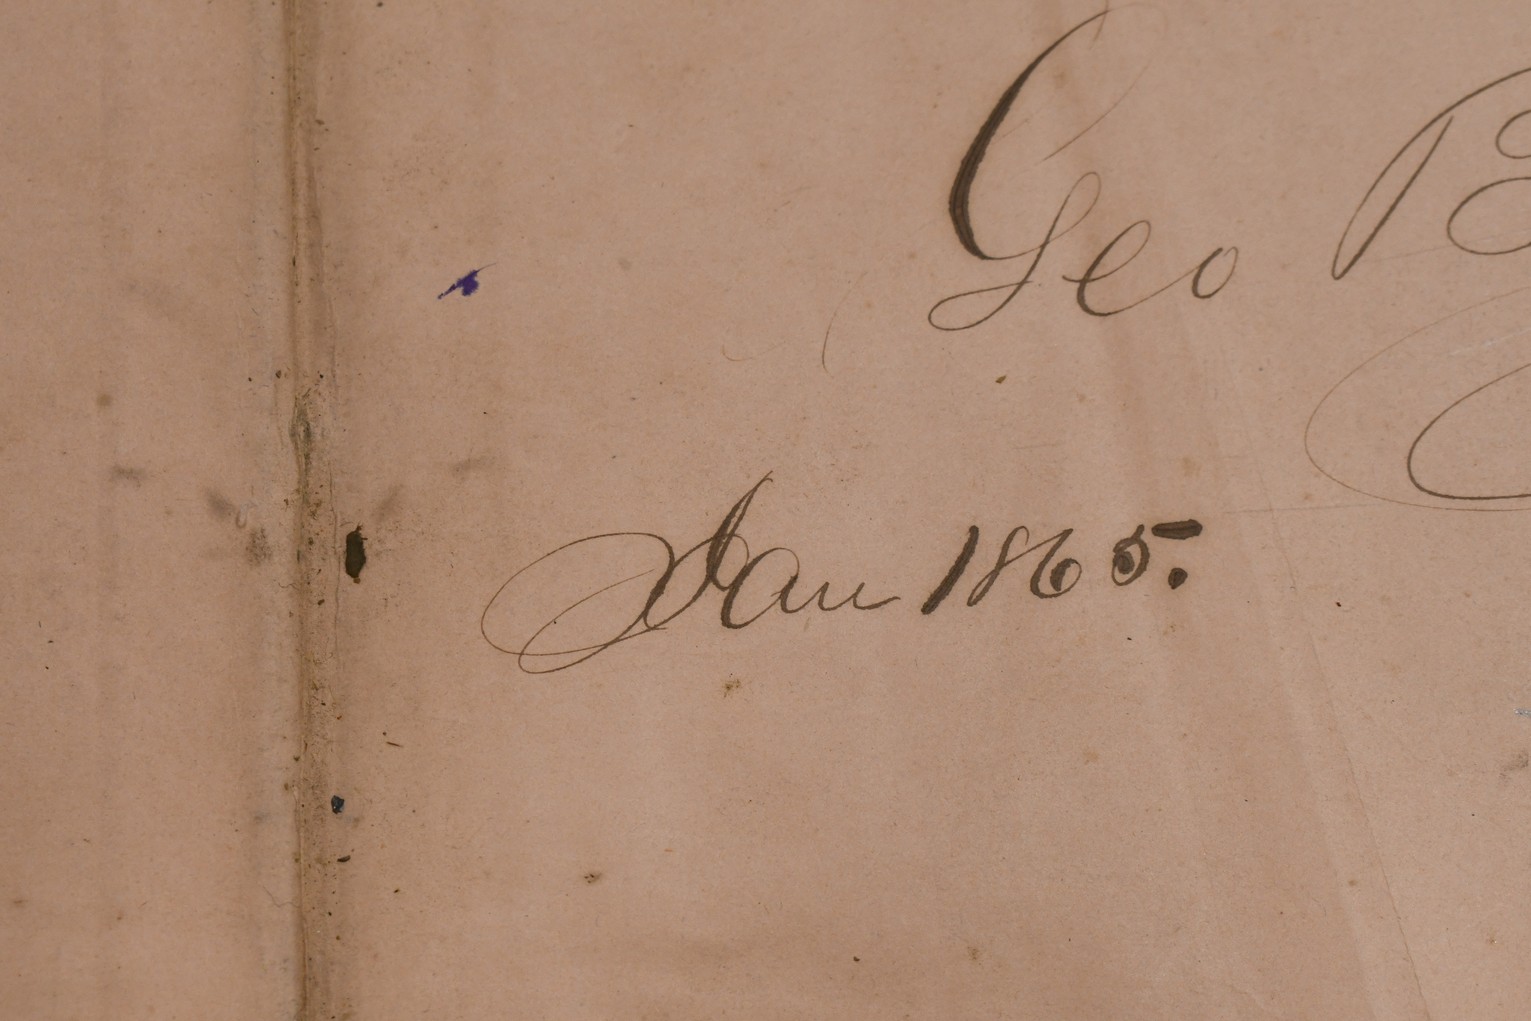 Geo B
Jan 1865.